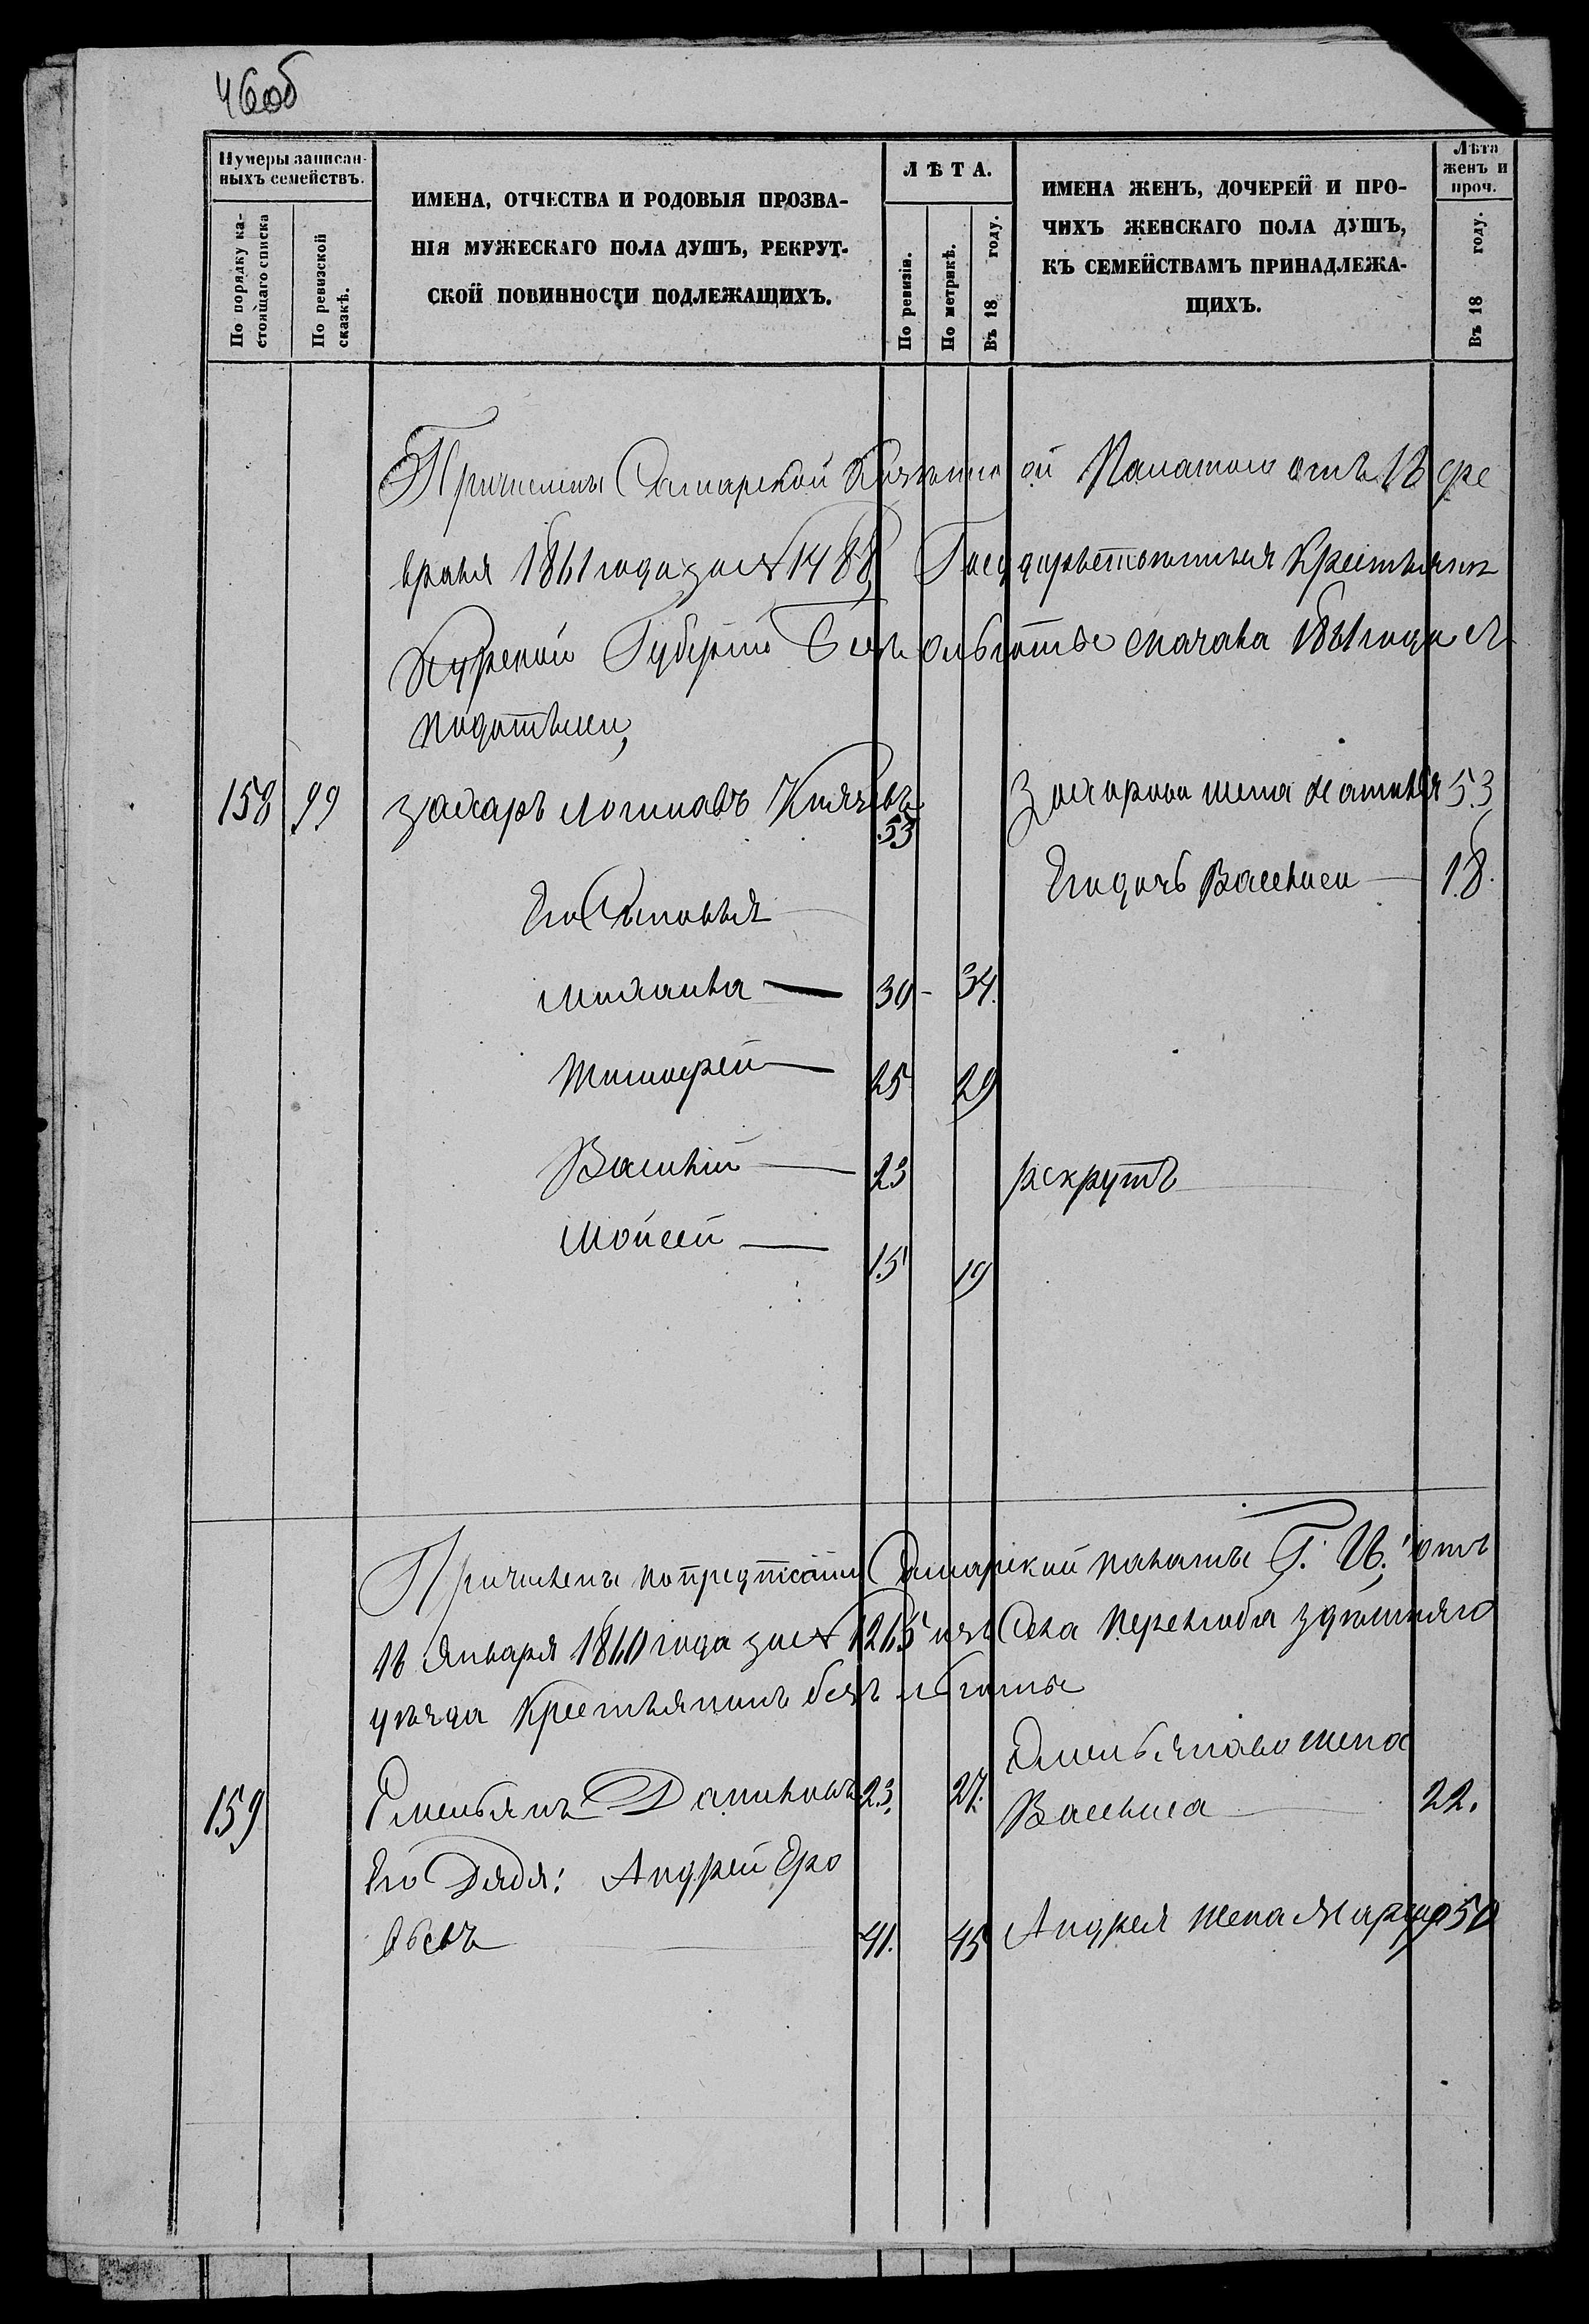 46об
Нумеры записан-
ныхъ семействъ.
По порядку на-
стоящаго списка
По ревизской
сказкѣ.
ИМЕНА, ОТЧЕСТВА И РОДОВЫЯ ПРОЗВА-
НІЯ МУЖЕСКАГО ПОЛА ДУШЪ, РЕКРУТ-
СКОЙ ПОВИННОСТИ ПОДЛЕЖАЩИХЪ.
ЛѢТА.
По ревизіи.
По метрикѣ.
Въ 18 году.
ИМЕНА ЖЕНЪ, ДОЧЕРЕЙ И ПРО-
ЧИХЪ ЖЕНСКАГО ПОЛА ДУШЪ,
КЪ СЕМЕЙСТВАМЪ ПРИНАДЛЕЖА-
ЩИХЪ.
Лѣта
женъ и
проч.
Въ 18 году.
Причислены Самарской Казенной Палатою отъ 13 фе
враля 1861 года за № 1488 Государственныя Крестьяни
Курской Губерніи Безъ льготы сначала 1861 года
158 99 Захаръ Логиновъ Князевъ 53 Захарова жена 53
Его дочь Василиса 18.
Его Сыновья
Михаила 30 - 34.
Тимофей 25 29
Василій 23 рекрутъ
Мойсей 15 19
Причислены по предписанію Самарской палаты Г. И. отъ
16 Января 1860 года за № 1265 изъ Села здѣшняго
уѣзда Крестьянинъ безъ льготы
Емельянова жена
159 Емельянъ Даниловъ 23. 27. Василиса 22.
Его Дядя: Андрей Еро
41. 45 Андрея жена 50